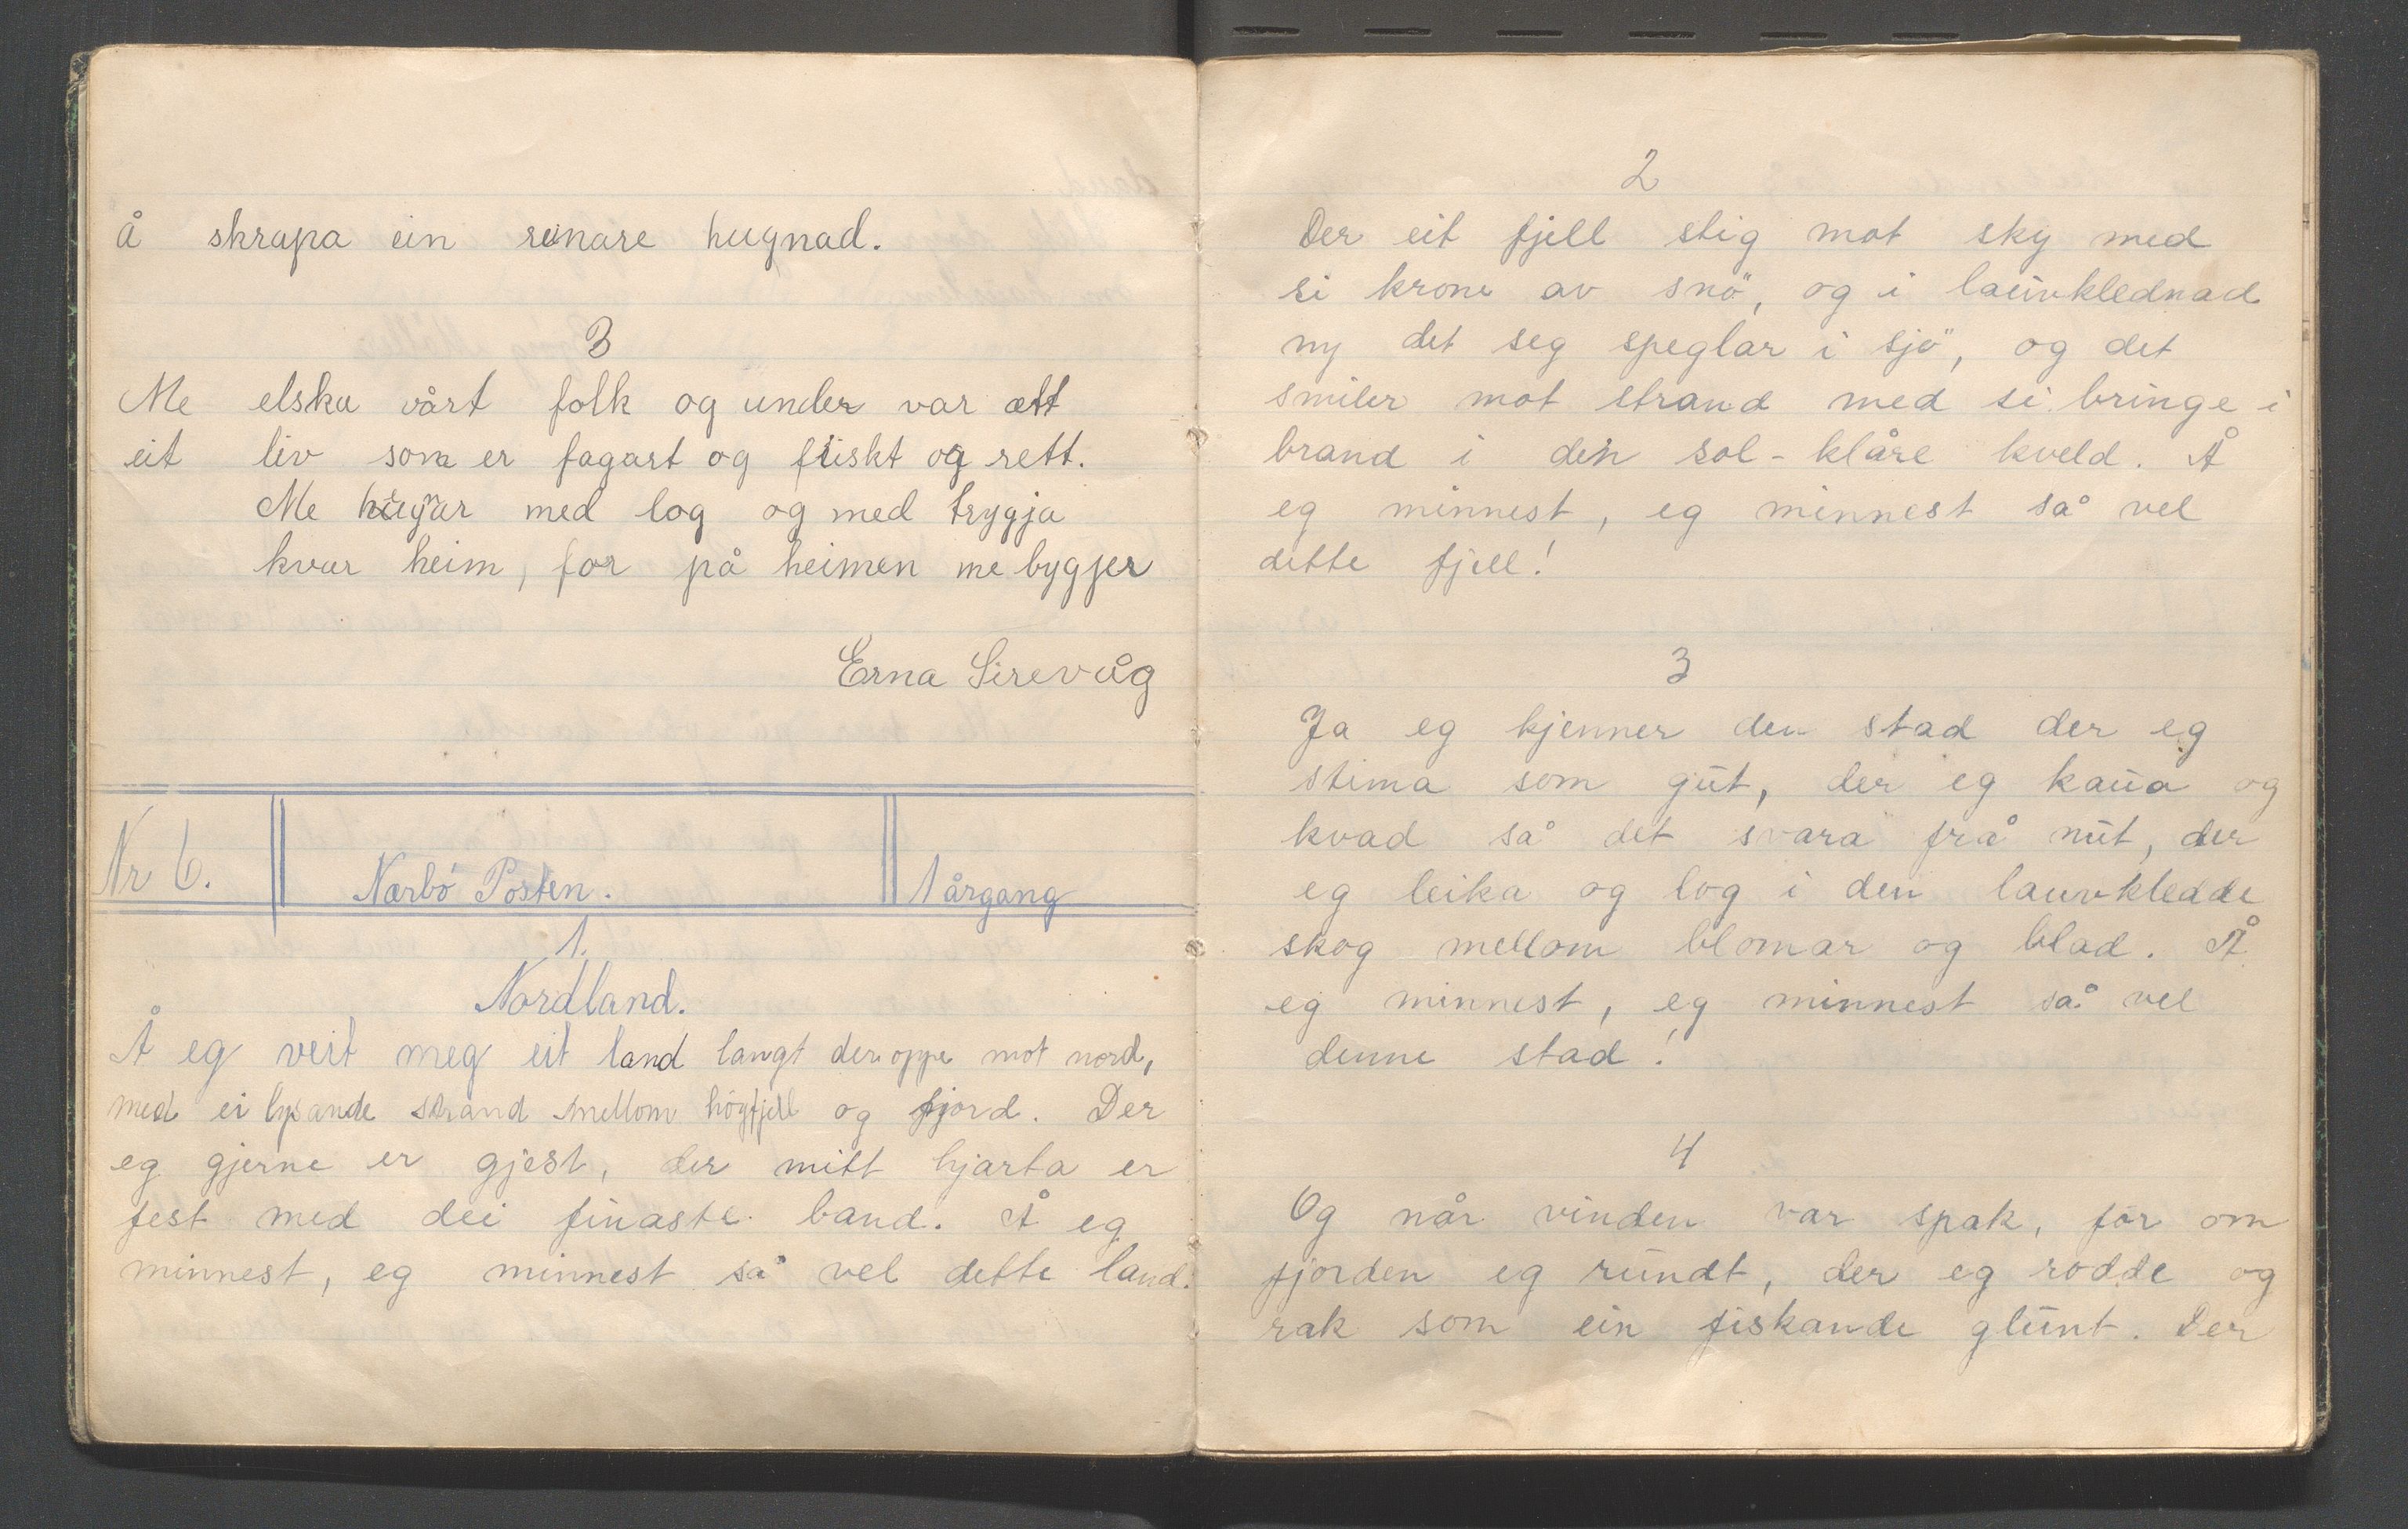 å skrapa ein renare hugnad.
3
Me elska vårt folk og under var ætt
eit liv som er fagart og friskt og rett.
Me hegnar med log og med trygja
kvar heim, for på heimen me bygjer
Erna Sirevåg
Nr 6. Nærbö Posten. 1 årgang
1.
Nordland.
Å eg veit meg eit land langt der oppe mot nord,
med ei lysande strand mellom högfjell og fjord. Der
eg gjerne er gjest, der mitt hjarta er
fest med dei finaste band. Å eg
minnest, eg minnest så vel dette land.
2
Der eit fjell stig mot sky med
si krone av snö, og i lauvklednad
ny det seg speglar i sjö, og det
smiler mot strand med si bringe i
brand i den sol-klåre kveld. Å
eg minnest, eg minnest så vel
dette fjell!
3
Ja eg kjenner den stad der eg
stima som gut, der eg kaua og
kvad så det svara frå nut, der
eg leika og log i den lauvkledde
skog mellom blomar og blad. Å
eg minnest, eg minnest så vel
denne stad!
4
Og når vinden var spak, for om
fjorden eg rundt, der eg rodde og
rak som ein fiskande glunt. Der